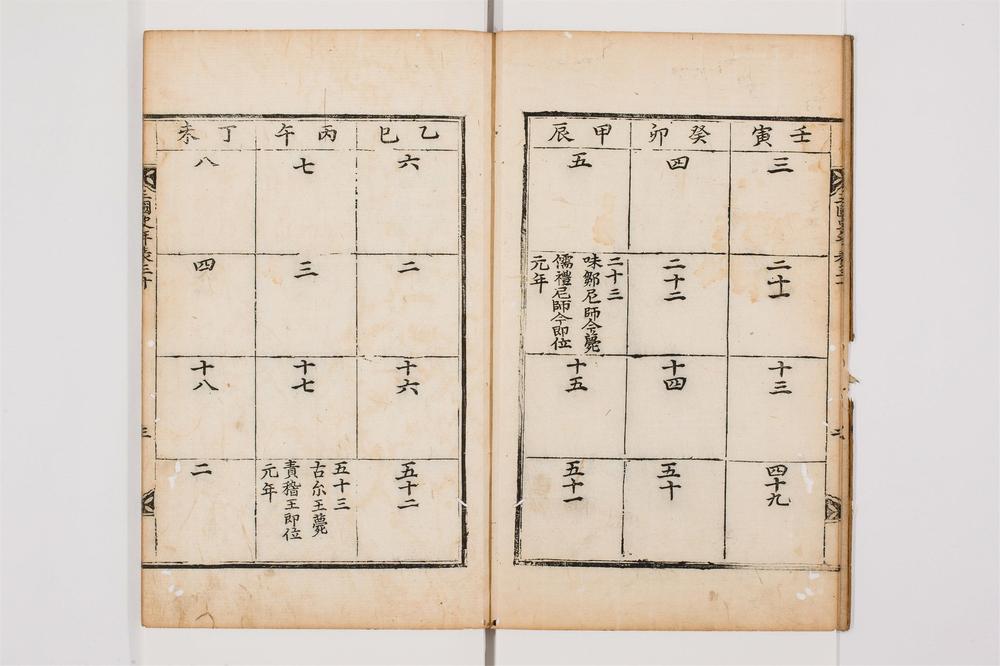 壬寅
三
二十一
十三
四十九
癸卯
四
二十二
十四
五十
甲辰
五
二十三
味鄒尼師今薨
儒禮尼師今即位
元年
十五
五十一
乙巳
六
二
十六
五十二
丙午
七
三
十七
五十三
古尒王薨
責稽王即位
元年
丁未
八
四
十八
二
三國史年表三十
三